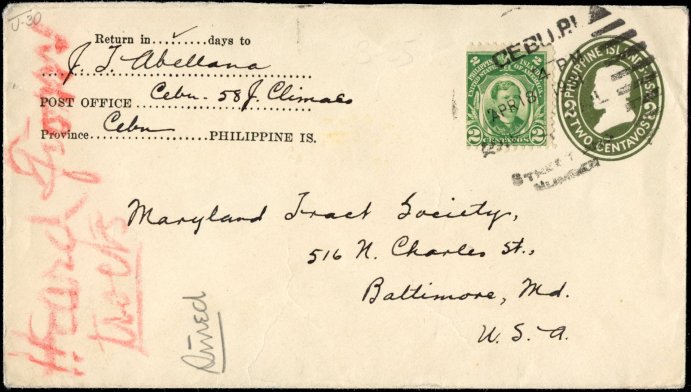 U-30
Return in ........ days to
J. T. Abellana
POST OFFICE Cebu - 58 J. Climaco
Province Cebu PHILIPPINE IS.
2 PHILIPPINE ISLANDS 2
UNITED STATES OF AMERICA
2 CENTAVOS 2
CEBU, P.I.
APR 18
STREET
NUMBER
PHILIPPINE ISLANDS U.S.
2 2
TWO CENTAVOS
Maryland Tract Society,
516 N. Charles St.,
Baltimore, Md.
U. S. A.
Heard from
tracts